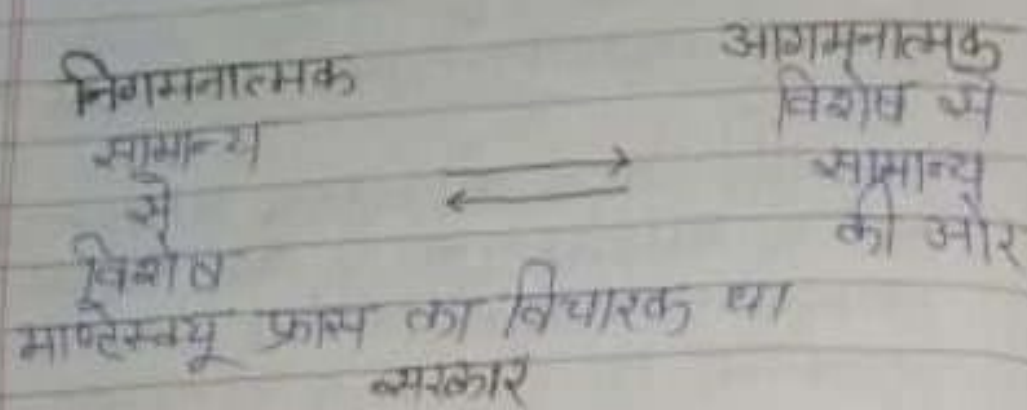 निगमनात्मक
सामान्य
से
विशेष
आगमनात्मक
विशेष से
सामान्य
की ओर
माण्टेस्क्यू फ्रांस का विचारक था
सरकार